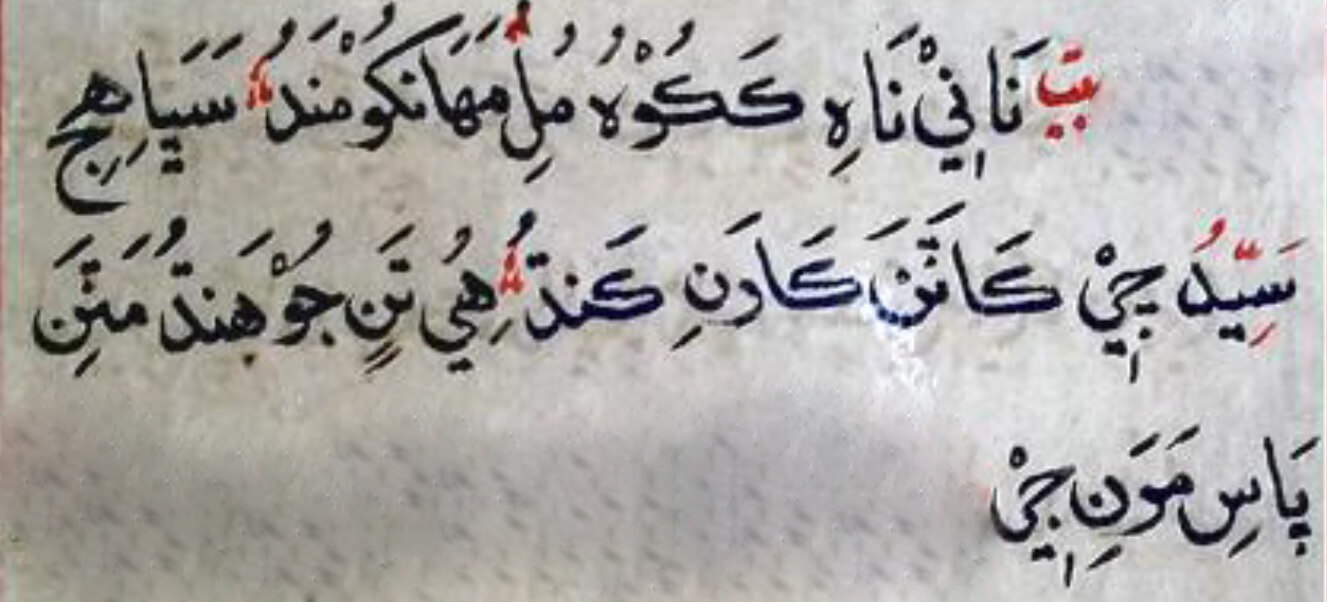 بيت نَانِيْ نَاهِ ڪَڪُوْهُ مُلِ مَهَانڪُو مَندُ سَيَاهِجِ
سَيِّدُ جِيْ ڪَاتَنَ ڪَارَنِ ڪَندُ هِيُ تَنِ جُوْ هَندُ مَتَنِ
پَاسِ مَوَنِ جِيْ